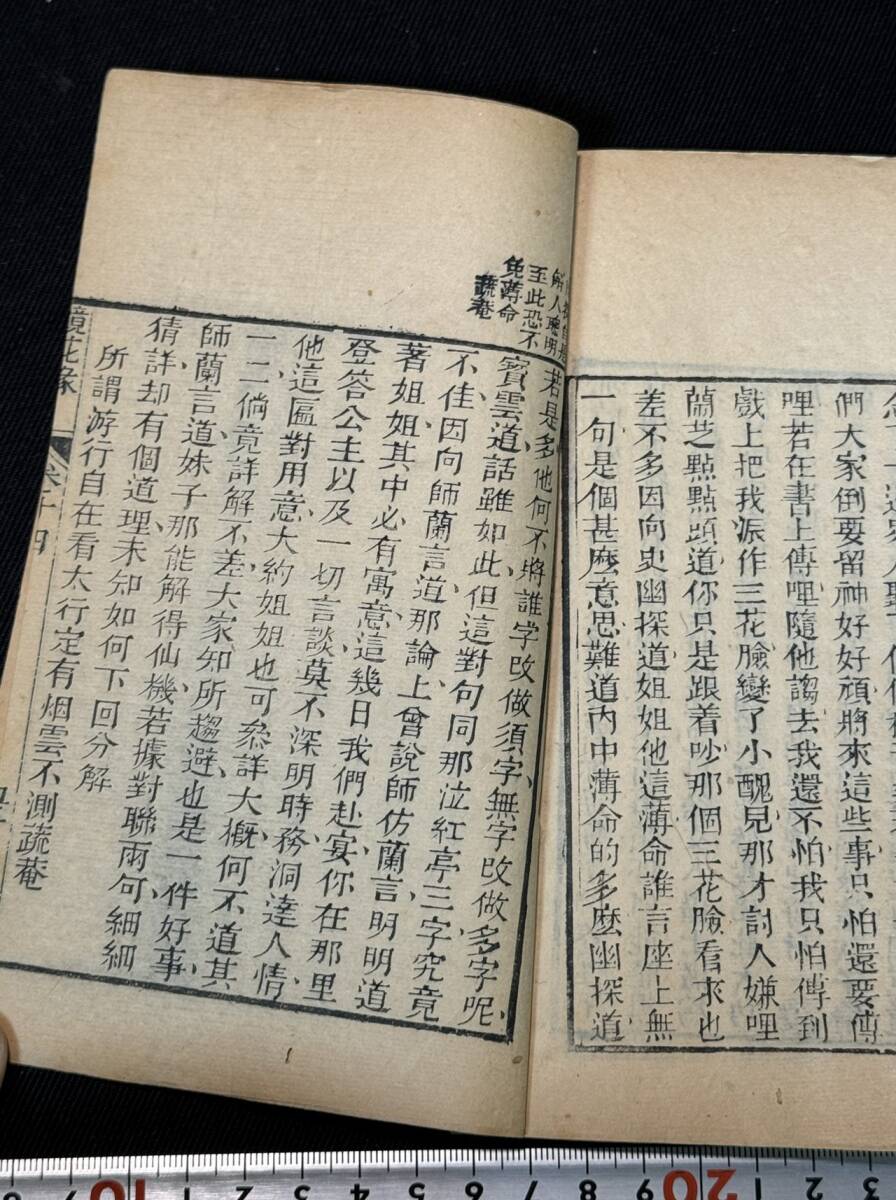 們大家倒要留神好好頑將來這些事只怕還要傳
哩若在書上傳哩隨他謅去我還不怕我只怕傳到
戲上把我派作三花臉變了小醜兒那才討人嫌哩
蘭芝點點頭道你只是跟着吵那個三花臉看來也
差不多因向史幽探道姐姐他這薄命誰言座上無
一句是個甚麼意思難道內中薄命的多麼幽探道
解人聰明
至此恐不
免薄命
蔬菴
若是多他何不將誰字改做須字無字改做多字呢
寶雲道話雖如此但這對句同那泣紅亭三字究竟
不佳因向師蘭言道那論上曾說師仿蘭言明明道
著姐姐其中必有寓意這幾日我們赴宴你在那里
登答公主以及一切言談莫不深明時務洞達人情
他這匾對用意大約姐姐也可叅詳大概何不道其
一二倘竟詳解不差大家知所趨避也是一件好事
師蘭言道妹子那能解得仙機若據對聯兩句細細
猜詳却有個道理未知如何下回分解
所謂游行自在看太行定有烟雲不測蔬菴
鏡花緣